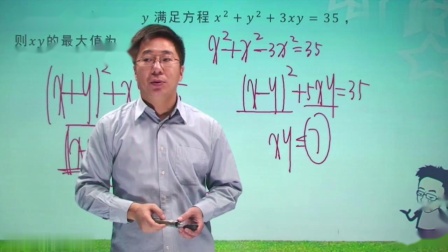 y 满足方程 x² + y² + 3xy = 35，
则xy的最大值为
x²+x²-3x²=35
(x+y)²+x
(x-y)²+5xy=35
xy≤7